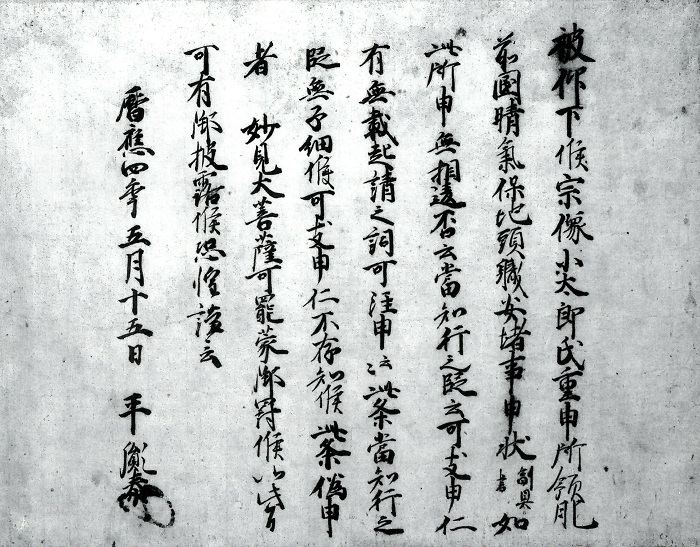 被仰下候宗像小太郎氏重申所領肥
前国晴気保地頭職安堵事申状副具書如
此所申無相違否云当知行之段云可支申仁
有無載起請之詞可注申云々此条当知行之
段無子細候可支申仁不存知候此条偽申
者　妙見大菩薩可罷蒙御罸候以此旨
可有御披露候恐惶謹言
暦應四年五月十五日　平胤泰